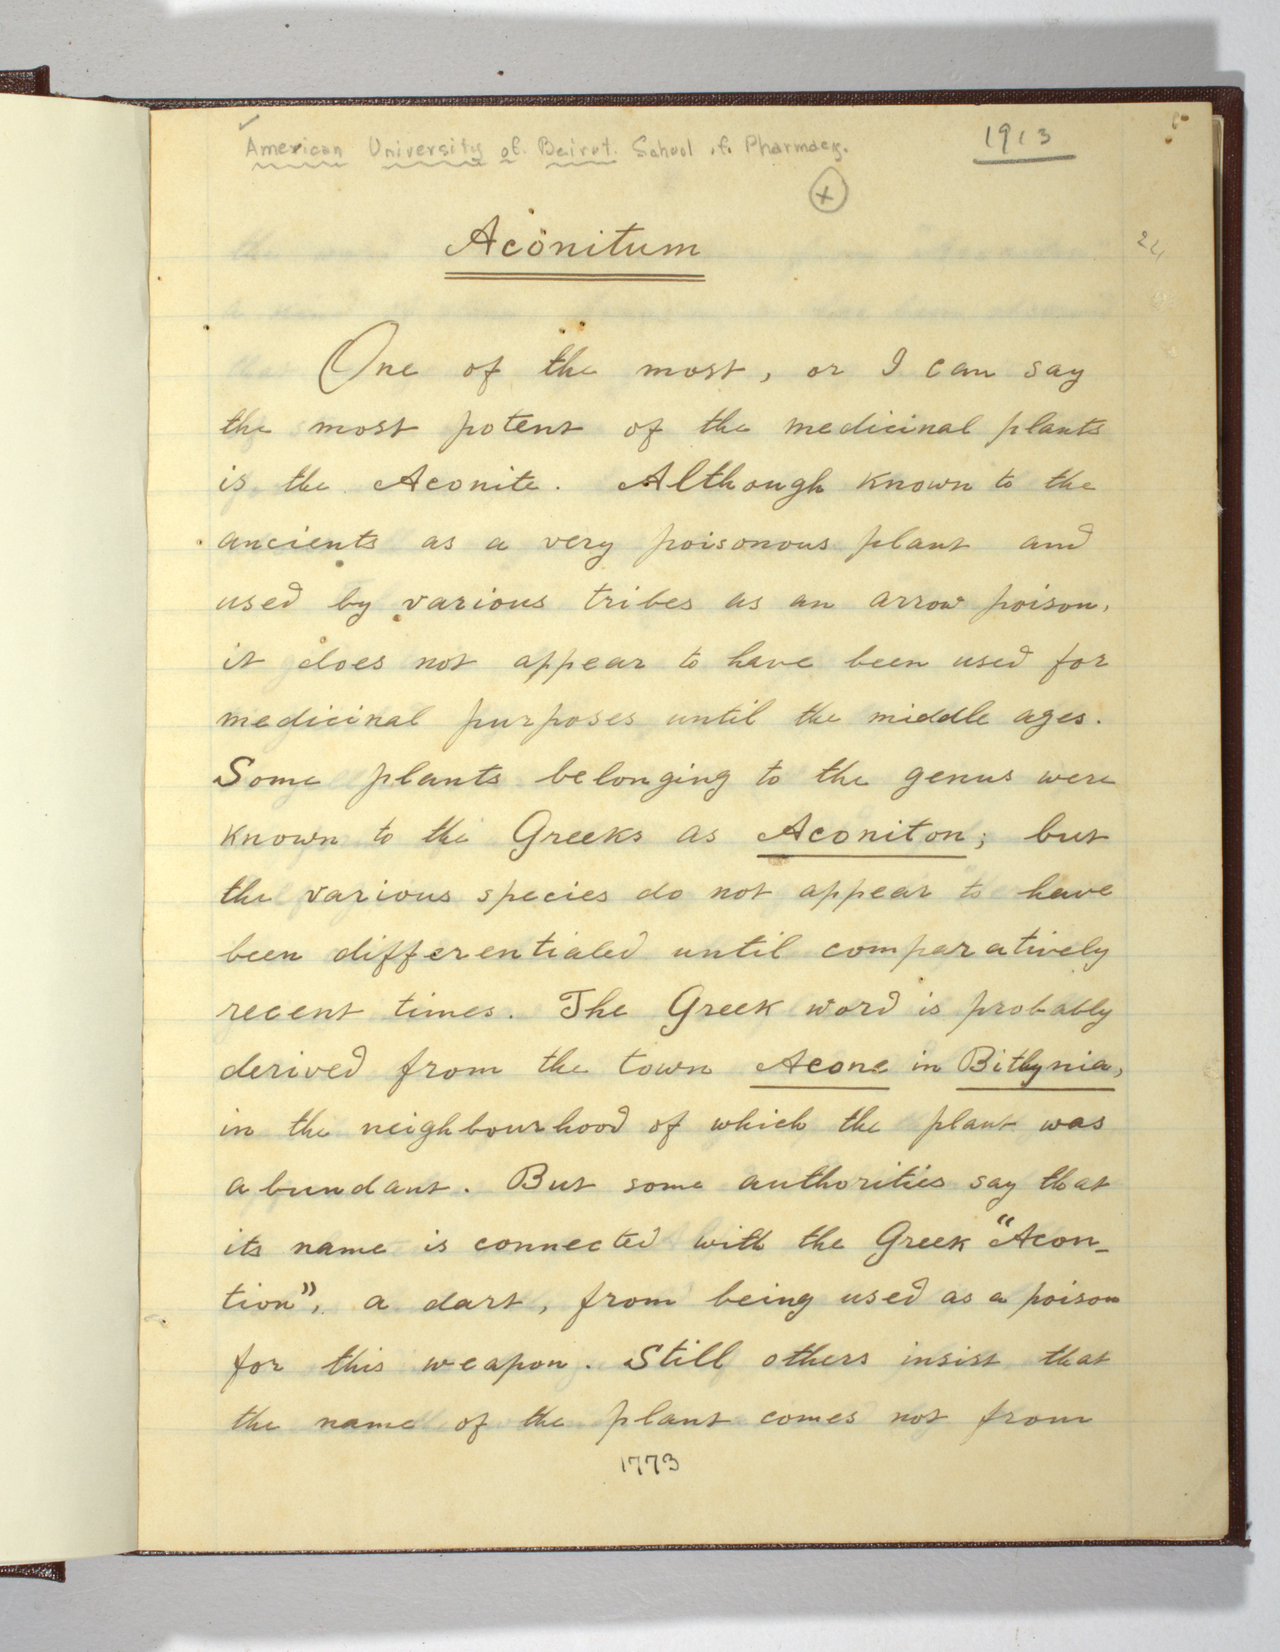 American University of Beirut. School of Pharmacy.
1913
Aconitum
One of the most, or I can say
the most potent of the medicinal plants
is the Aconite. Although known to the
ancients as a very poisonous plant and
used by various tribes as an arrow poison,
it does not appear to have been used for
medicinal purposes until the middle ages.
Some plants belonging to the genus were
known to the Greeks as Aconiton; but
the various species do not appear to have
been differentiated until comparatively
recent times. The Greek word is probably
derived from the town Acone in Bithynia,
in the neighbourhood of which the plant was
abundant. But some authorities say that
its name is connected with the Greek "Acon-
tion", a dart, from being used as a poison
for this weapon. Still others insist that
the name of the plant comes not from
1773